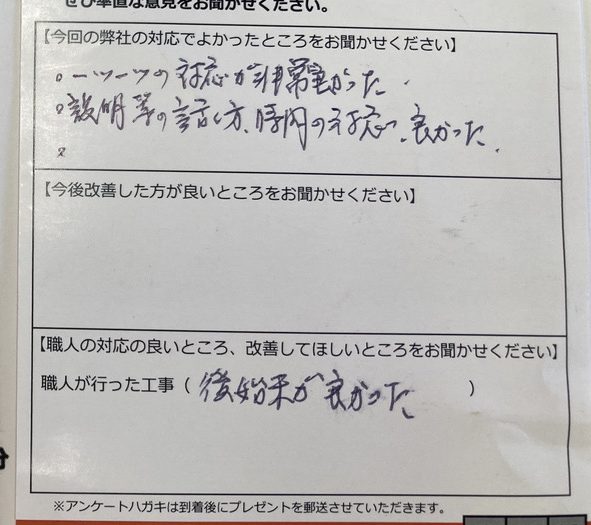 ぜひ率直な意見をお聞かせください。
【今回の弊社の対応でよかったところをお聞かせください】
。一ツ一ツの対応が非常に良かった.
。説明等の話し方、時間の対応、良かった.
【今後改善した方が良いところをお聞かせください】
【職人の対応の良いところ、改善してほしいところをお聞かせください】
職人が行った工事（ 後始末が良かった ）
※アンケートハガキは到着後にプレゼントを郵送させていただきます。